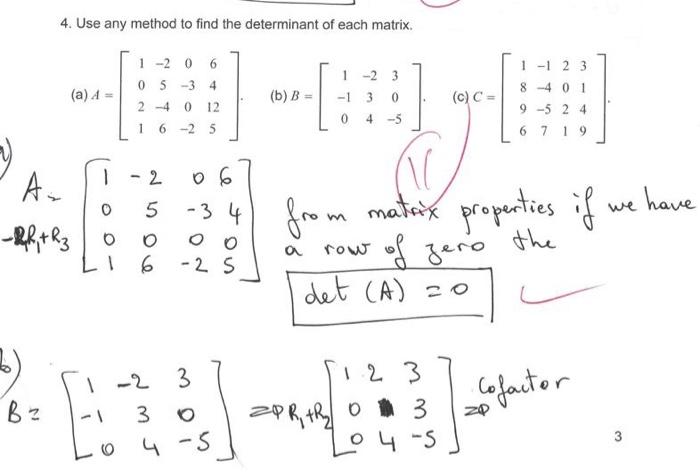 4. Use any method to find the determinant of each matrix.
1 -2 0 6
0 5 -3 4
(a) A =
2 -4 0 12
1 6 -2 5
.
1 -2 3
(b) B = -1 3 0 .
0 4 -5
1 -1 2 3
8 -4 0 1
(c) C =
9 -5 2 4
6 7 1 9
.
a)
A =
1 -2 0 6
0 5 -3 4
-2R1+R3 0 0 0 0
1 6 -2 5
from matrix properties if we have
a row of zero the
det (A) = 0
b)
B =
1 -2 3
-1 3 0
0 4 -5
=> R1+R2
1 2 3
0 3
0 4 -5
=> Cofactor
3